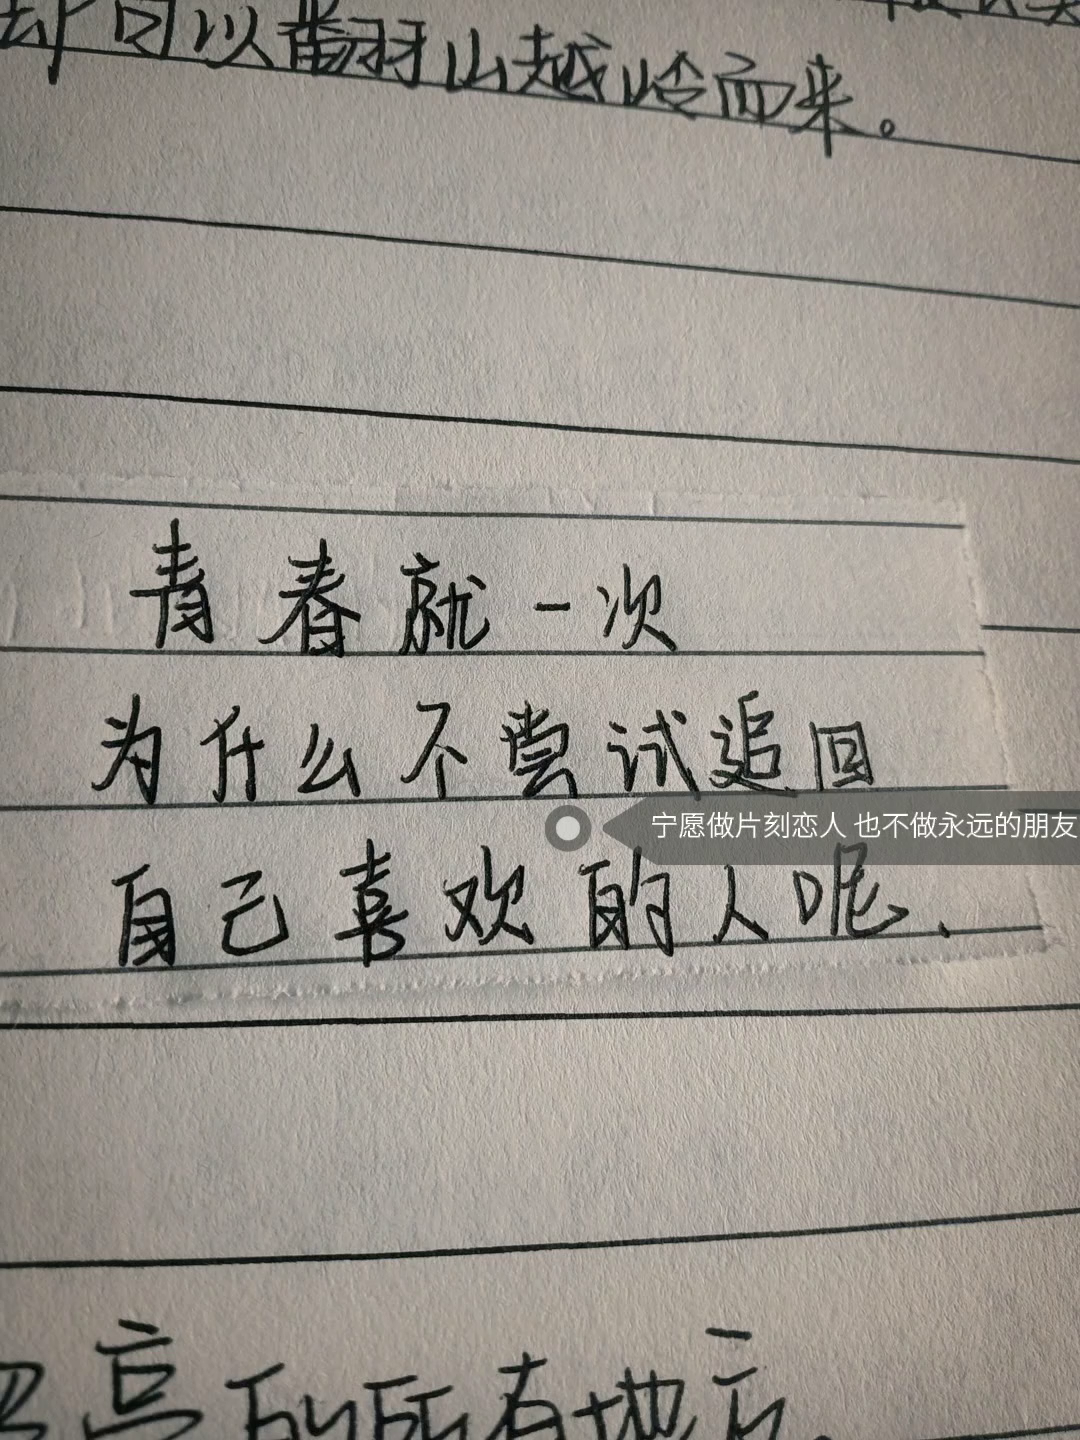 却可以翻山越岭而来。
青春就一次
为什么不尝试追回
宁愿做片刻恋人 也不做永远的朋友
自己喜欢的人呢、
的所有地方